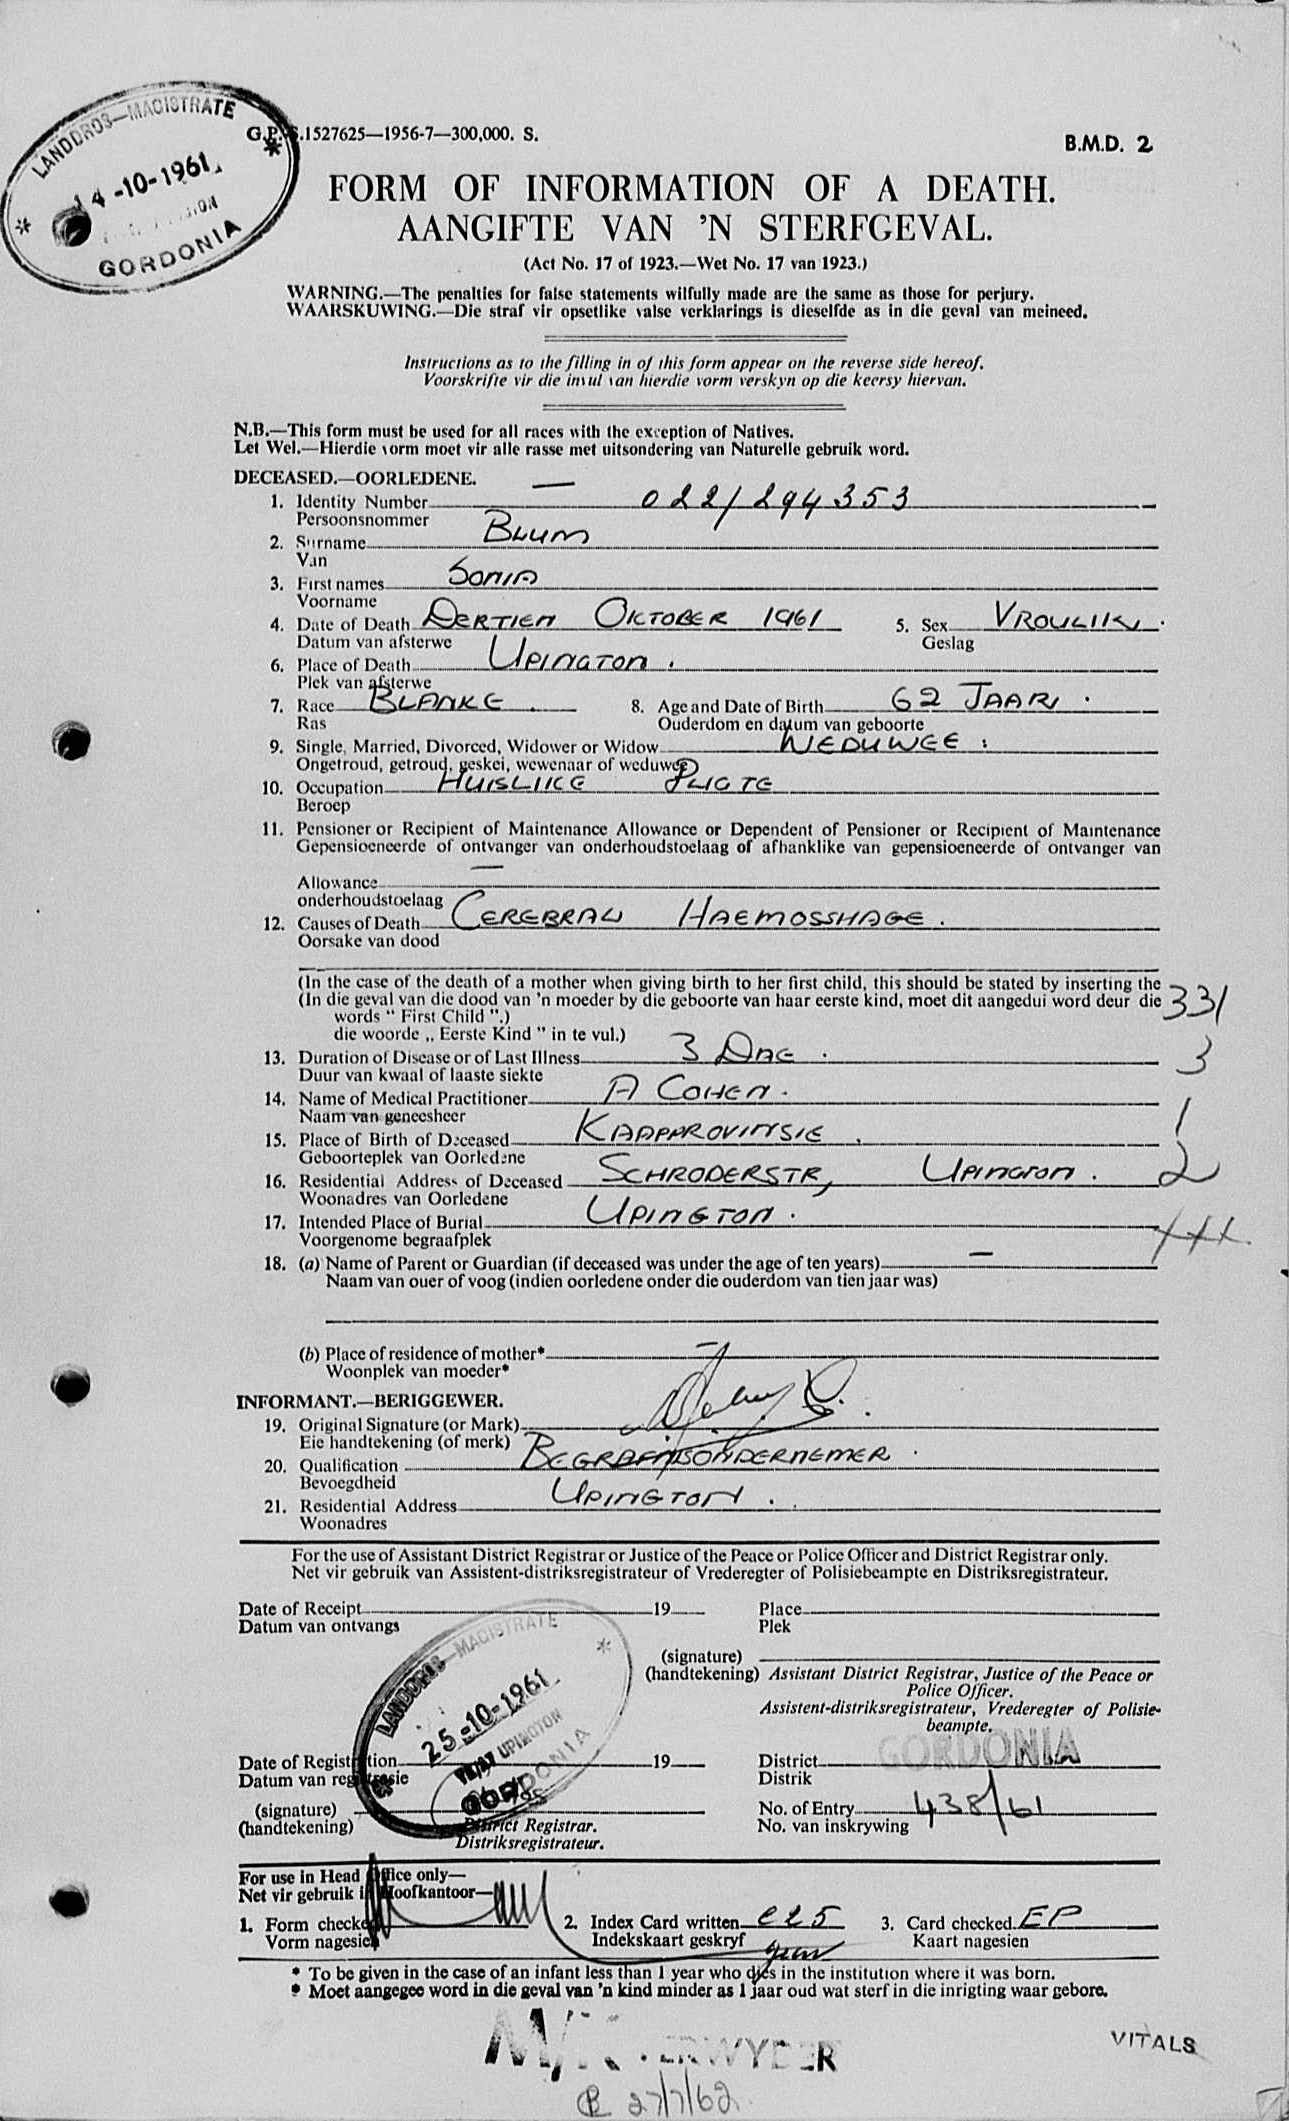 LANDDROS—MAGISTRATE
14-10-1961
GORDONIA
G.P.-S.1527625—1956-7—300,000. S.
B.M.D. 2
FORM OF INFORMATION OF A DEATH.
AANGIFTE VAN 'N STERFGEVAL.
(Act No. 17 of 1923.—Wet No. 17 van 1923.)
WARNING.—The penalties for false statements wilfully made are the same as those for perjury.
WAARSKUWING.—Die straf vir opsetlike valse verklarings is dieselfde as in die geval van meineed.
Instructions as to the filling in of this form appear on the reverse side hereof.
Voorskrifte vir die invul van hierdie vorm verskyn op die keersy hiervan.
N.B.—This form must be used for all races with the exception of Natives.
Let Wel.—Hierdie vorm moet vir alle rasse met uitsondering van Naturelle gebruik word.
DECEASED.—OORLEDENE. —
1. Identity Number 022/294353
Persoonsnommer
2. Surname BLUM
Van
3. First names SONIA
Voorname
4. Date of Death DERTIEN OKTOBER 1961 5. Sex VROULIK.
Datum van afsterwe Geslag
6. Place of Death UPINGTON.
Plek van afsterwe
7. Race BLANKE. 8. Age and Date of Birth 62 JAAR.
Ras Ouderdom en datum van geboorte
9. Single, Married, Divorced, Widower or Widow WEDUWEE.
Ongetroud, getroud, geskei, wewenaar of weduwee
10. Occupation HUISLIKE PLIGTE
Beroep
11. Pensioner or Recipient of Maintenance Allowance or Dependent of Pensioner or Recipient of Maintenance
Gepensioeneerde of ontvanger van onderhoudstoelaag of afhanklike van gepensioeneerde of ontvanger van
Allowance —
onderhoudstoelaag
12. Causes of Death CEREBRAL HAEMOSSHAGE.
Oorsake van dood
(In the case of the death of a mother when giving birth to her first child, this should be stated by inserting the
(In die geval van die dood van 'n moeder by die geboorte van haar eerste kind, moet dit aangedui word deur die 331
words " First Child ".)
die woorde „ Eerste Kind " in te vul.)
13. Duration of Disease or of Last Illness 3 DAE. 3
Duur van kwaal of laaste siekte
14. Name of Medical Practitioner A COHEN.
Naam van geneesheer 1
15. Place of Birth of Deceased KAAPPROVINSIE.
Geboorteplek van Oorledene
16. Residential Address of Deceased SCHRODERSTR, UPINGTON. 2
Woonadres van Oorledene
17. Intended Place of Burial UPINGTON.
Voorgenome begraafplek
18. (a) Name of Parent or Guardian (if deceased was under the age of ten years) —
Naam van ouer of voog (indien oorledene onder die ouderdom van tien jaar was)
(b) Place of residence of mother* —
Woonplek van moeder*
INFORMANT.—BERIGGEWER.
19. Original Signature (or Mark)
Eie handtekening (of merk)
20. Qualification BEGRAFNISONDERNEMER.
Bevoegdheid
21. Residential Address UPINGTON.
Woonadres
For the use of Assistant District Registrar or Justice of the Peace or Police Officer and District Registrar only.
Net vir gebruik van Assistent-distriksregistrateur of Vrederegter of Polisiebeampte en Distriksregistrateur.
Date of Receipt 19 Place
Datum van ontvangs Plek
LANDDROS—MAGISTRATE
25-10-1961
UPINGTON
GORDONIA
(signature)
(handtekening) Assistant District Registrar, Justice of the Peace or
Police Officer.
Assistent-distriksregistrateur, Vrederegter of Polisie-
beampte.
Date of Registration 19 District GORDONIA
Datum van registrasie Distrik
(signature) No. of Entry 438/61
(handtekening) District Registrar. No. van inskrywing
Distriksregistrateur.
For use in Head Office only—
Net vir gebruik in Hoofkantoor—
1. Form checked 2. Index Card written 3. Card checked EP
Vorm nagesien Indekskaart geskryf Kaart nagesien
* To be given in the case of an infant less than 1 year who dies in the institution where it was born.
* Moet aangegee word in die geval van 'n kind minder as 1 jaar oud wat sterf in die inrigting waar gebore.
VITALS
27/7/62